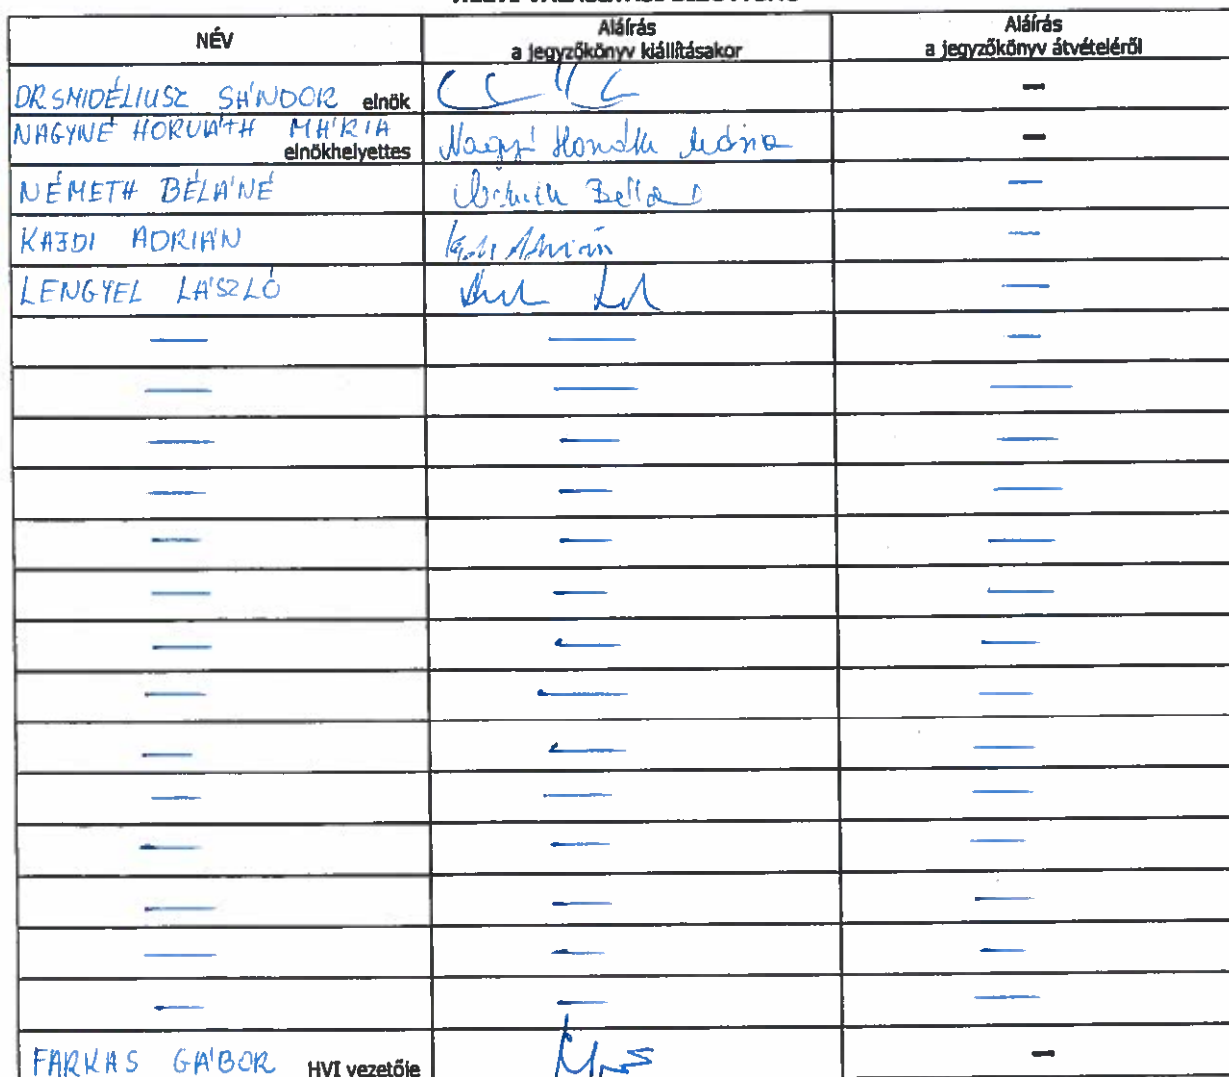 NÉV
Aláírás
a jegyzőkönyv kiállításakor
Aláírás
a jegyzőkönyv átvételéről
DR SMIDÉLIUSZ SÁNDOR elnök
—
NAGYNÉ HORVÁTH MÁRIA
elnökhelyettes
Nagyné Horváth Mária
—
NÉMETH BÉLÁNÉ
Németh Béláné
—
KAJDI ADRIÁN
Kajdi Adrián
—
LENGYEL LÁSZLÓ
—
— — —
— — —
— — —
— — —
— — —
— — —
— — —
— — —
— — —
— — —
— — —
— — —
— — —
— — —
FARKAS GÁBOR HVI vezetője
—